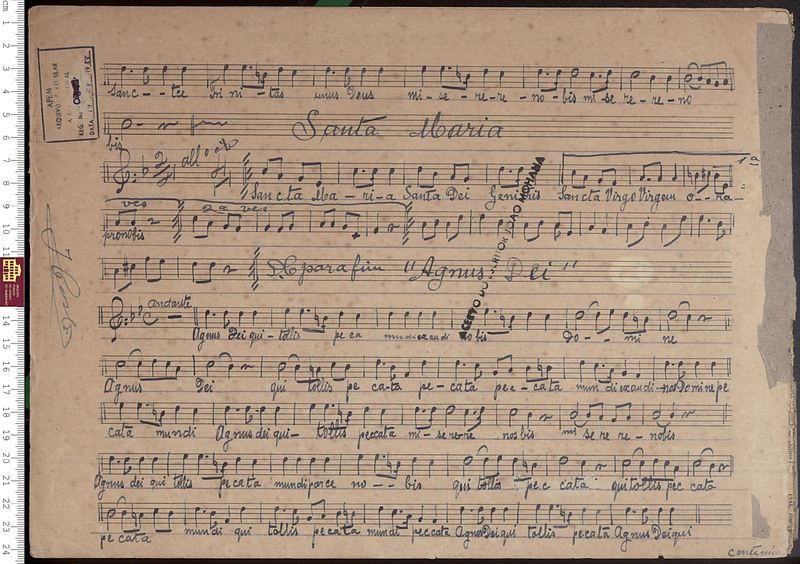 Sanc - - tce Tri ni - tas unus Deus mi - se - re - re - no - bis mi se re - re - no
Santa Maria
bis
all°
Sancta Ma - ri - a Santa Dei Genitris Sancta Virgo Virgem o - - ra -
ves 2a ves
pronobis
para fim "Agnus Dei"
andante
Agnus Dei qui - tollis pe ca mundi exaudi nobis Do - - mi ne
Agnus Dei qui tollis pe ca-ta pe - cata pec - cata mun di exaudi - nos Domine pe
cata mundi Agnus dei qui - tollis peccata mi - se re-re nosbis mi se re re - nobis
Agnus dei qui tollis pe cata mundi parce no - - bis qui tollis pec cata qui tollis pec cata
pe cata mundi qui tollis pecata mundi peccata Agnus Dei qui tollis pecata Agnus Dei qui
APEM
REG. No
DATA
ACERVO DO JOÃO MOHANA